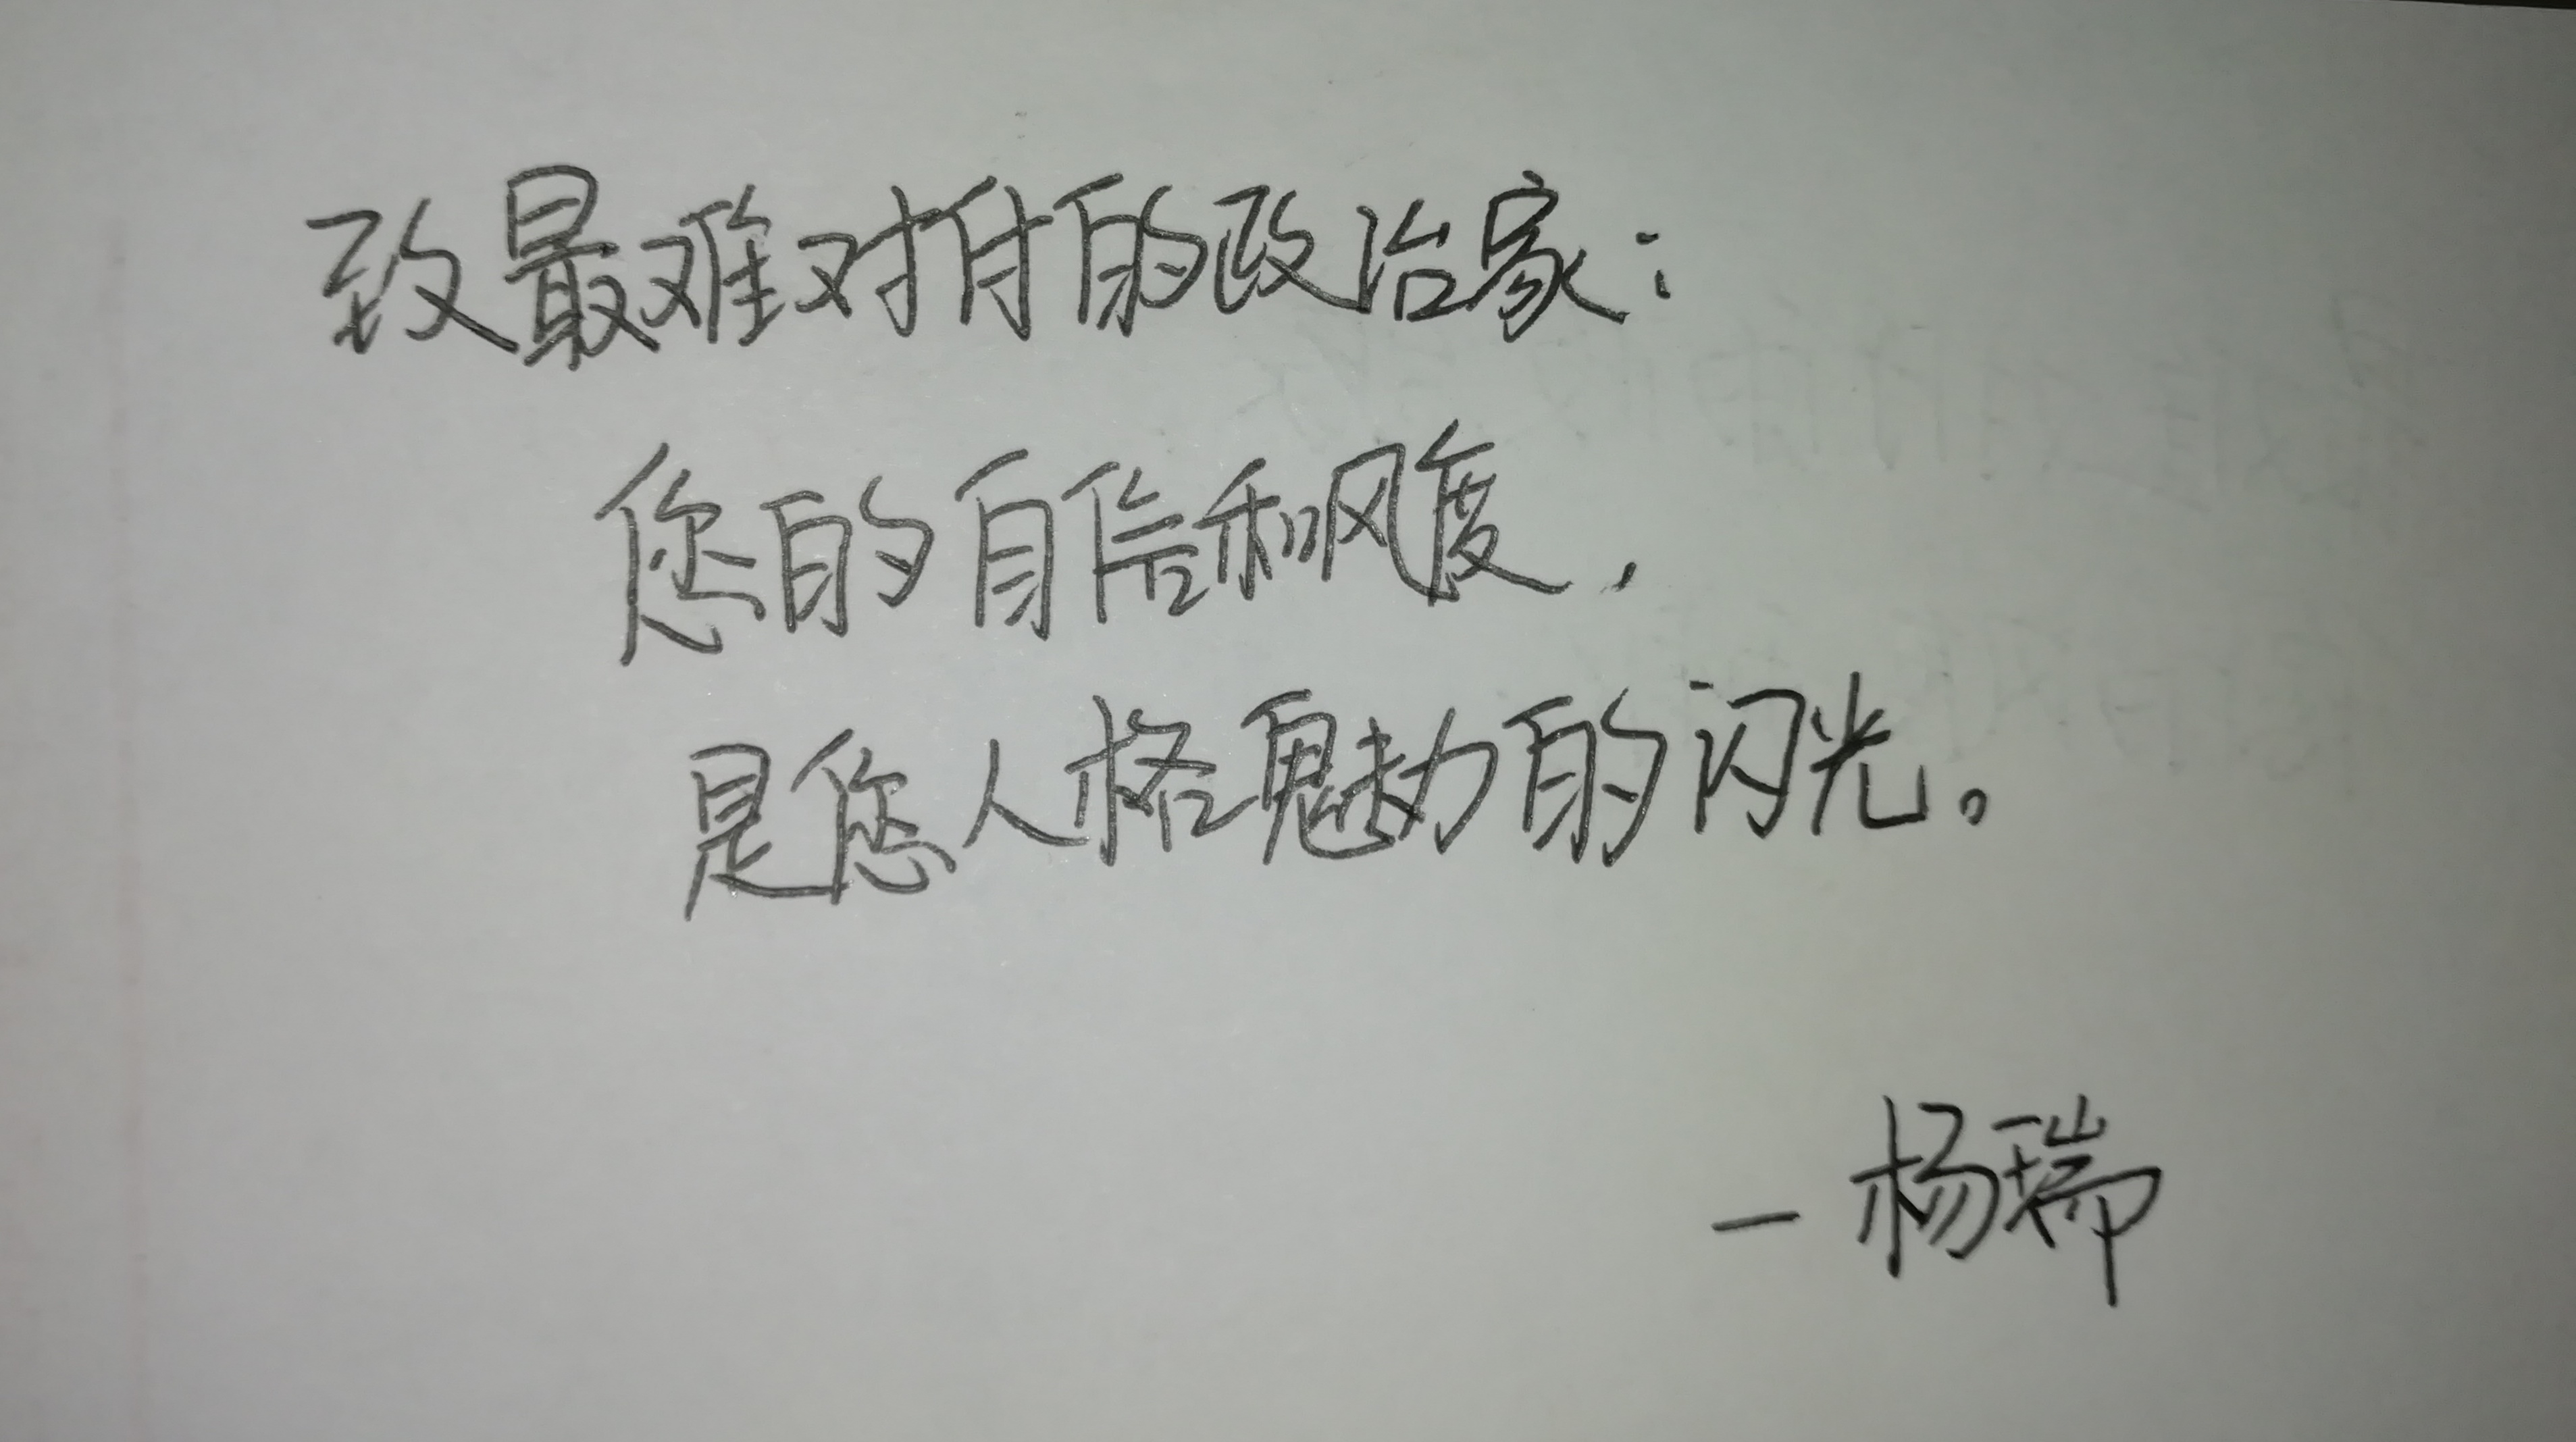 致最难对付的政治家：
您的自信和风度，
是您人格魅力的闪光。
— 杨瑞